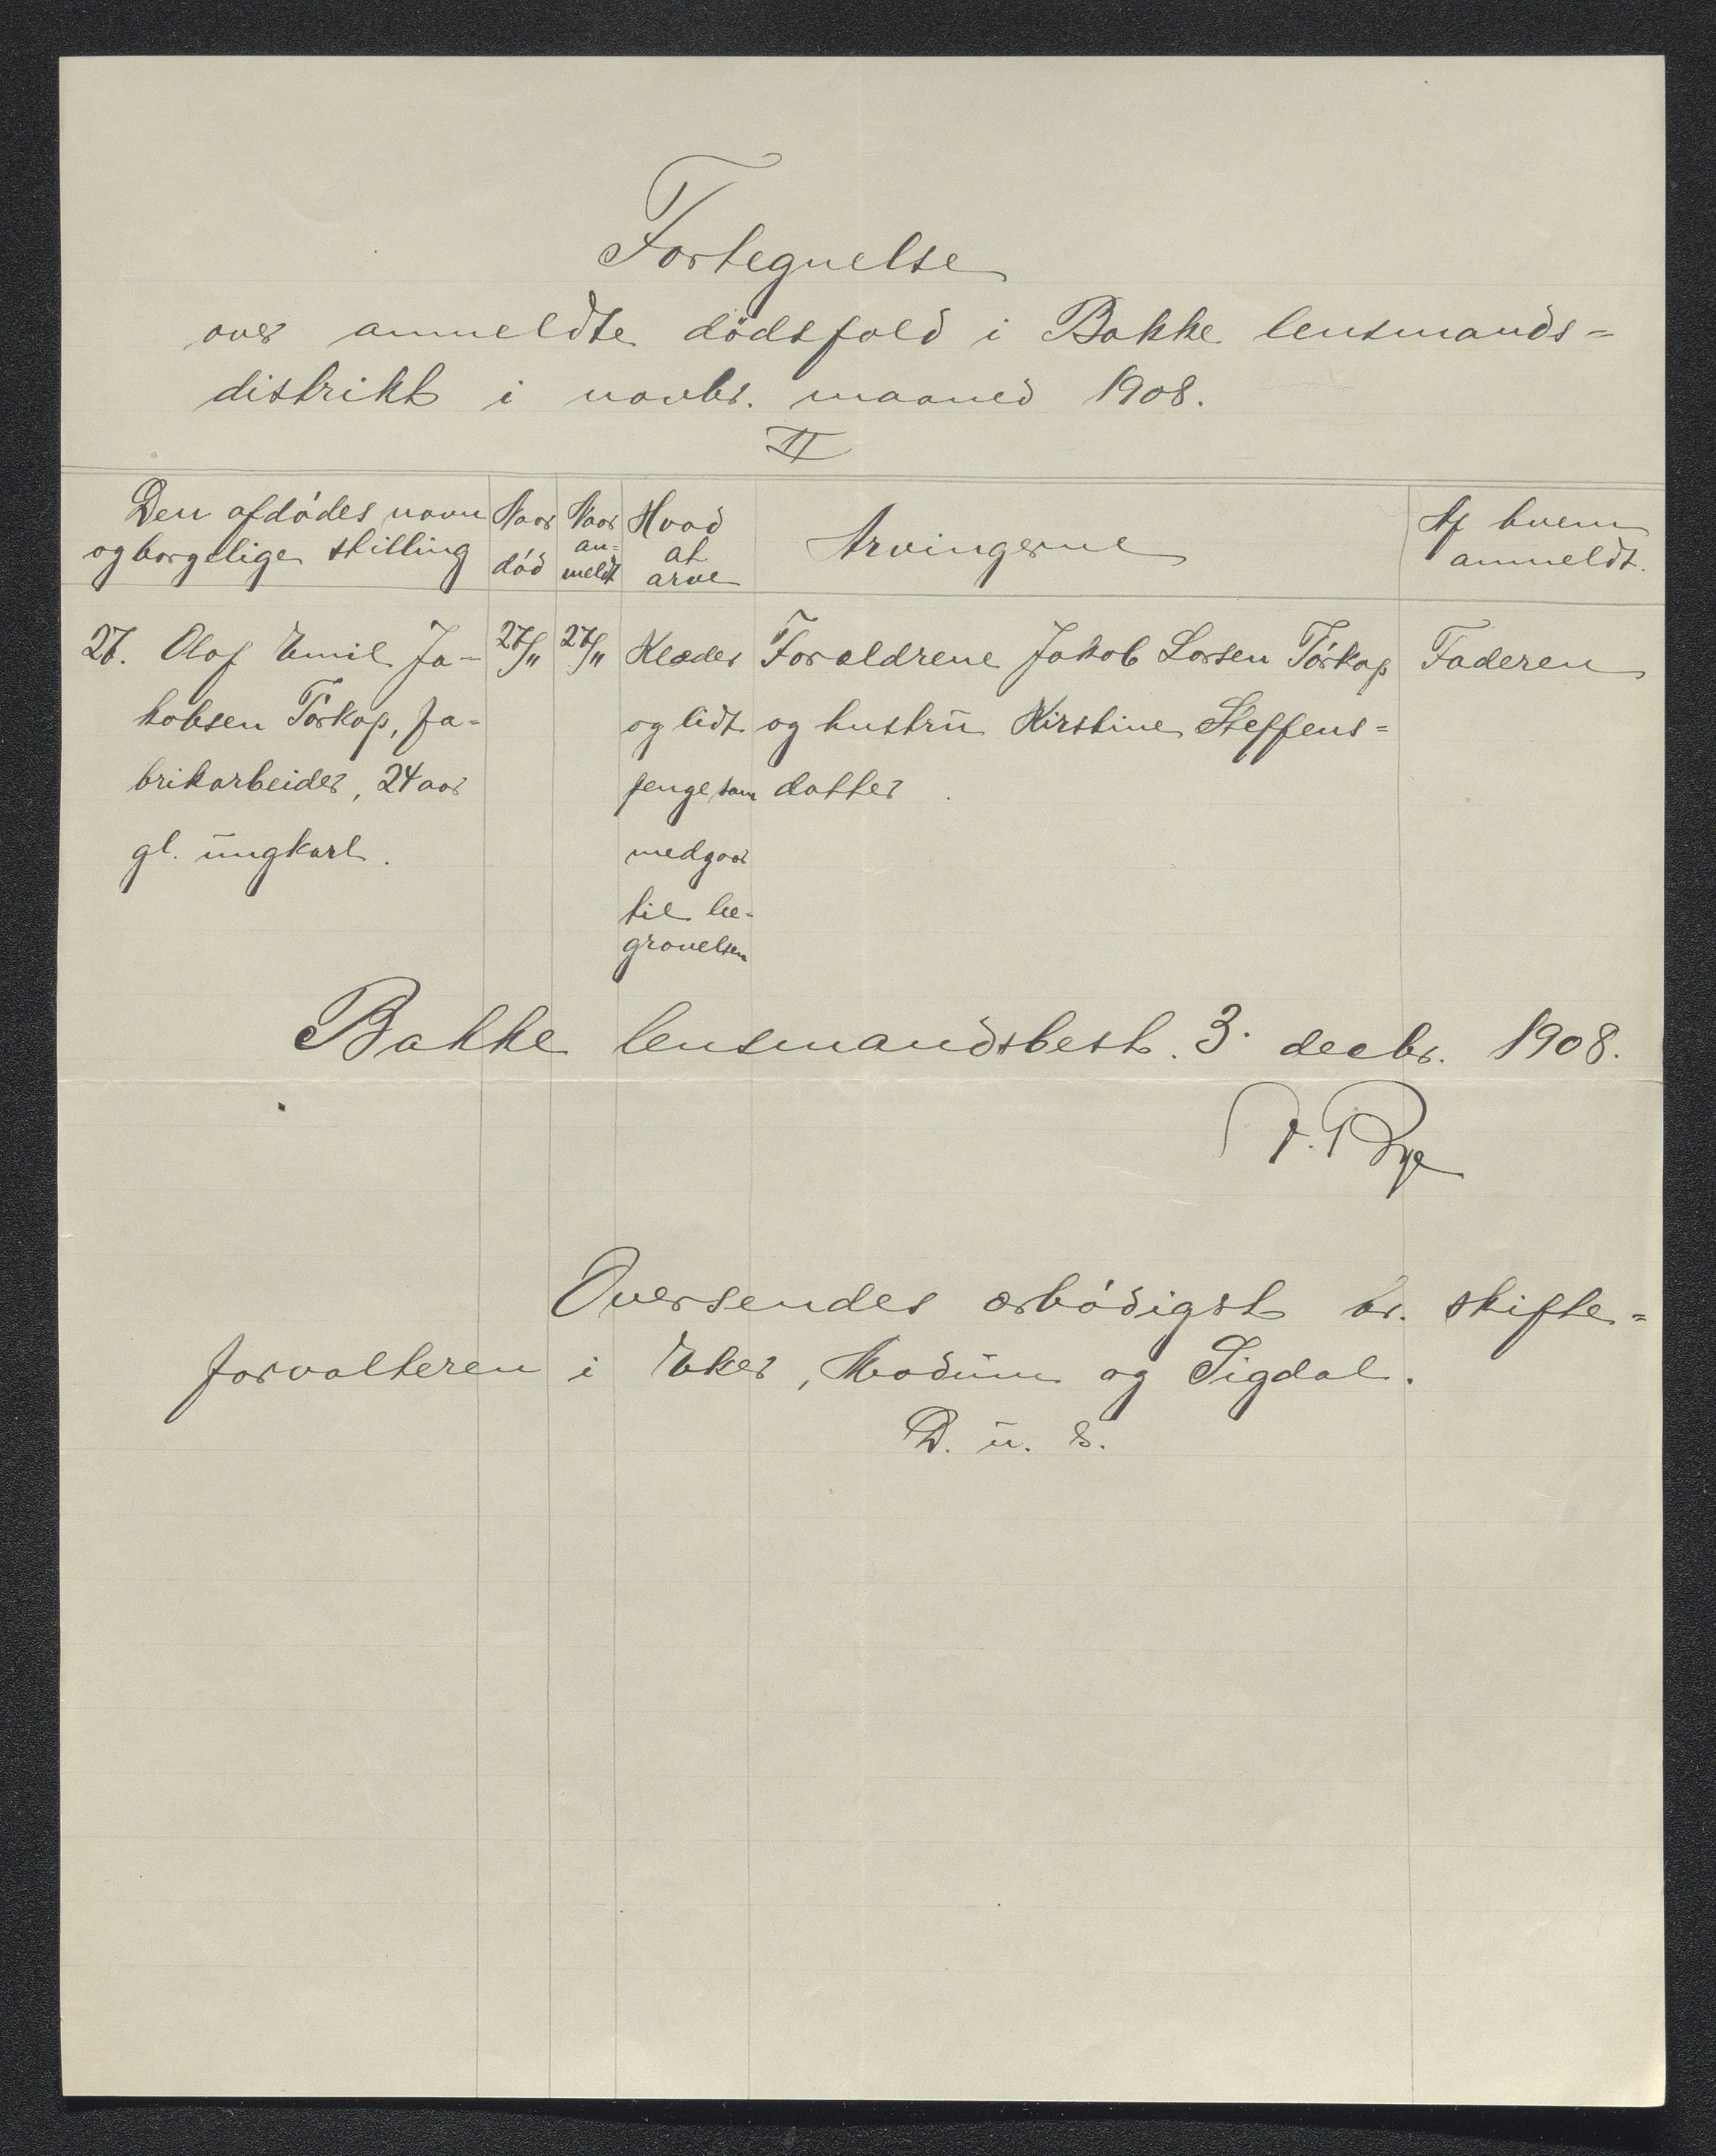 Fortegnelse
over anmeldte dödsfald i Bakke lensmands=
distrikt i novbr. maaned 1908.
II
Den afdödes navn og borgelige stilling
Naar död
Naar an=meldt
Hvad at arve
Arvingerne
Af hvem anmeldt.
27. Olaf Emil Ja- 27/11 27/11 Klæder Forældrene Jakob Larsen Törkop Faderen
kobsen Törkop, fa- og lidt og hustru Kirstine Steffens=
brikarbeider, 24 aar penge som datter
gl. ungkarl. medgaar
til be-
gravelsen
Bakke lensmandsbest. 3. decbr. 1908.
Oversendes ærbödigst hr. skifte=
forvalteren i Eker, Modum og Sigdal.
D. u. s.